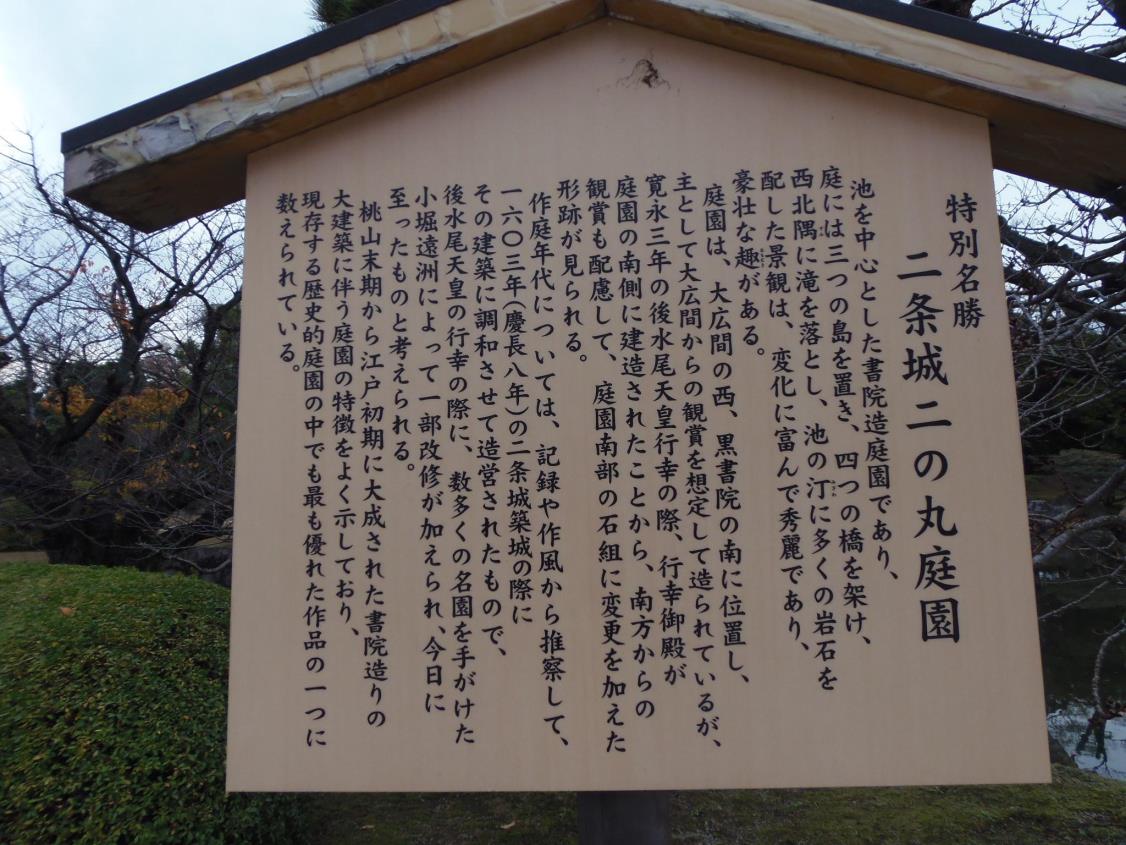 特別名勝
二条城二の丸庭園
池を中心とした書院造庭園であり、
庭には三つの島を置き、四つの橋を架け、
西北隅に滝を落とし、池の汀に多くの岩石を
配した景観は、変化に富んで秀麗であり、
豪壮な趣がある。
庭園は、大広間の西、黒書院の南に位置し、
主として大広間からの観賞を想定して造られているが、
寛永三年の後水尾天皇行幸の際、行幸御殿が
庭園の南側に建造されたことから、南方からの
観賞も配慮して、庭園南部の石組に変更を加えた
形跡が見られる。
作庭年代については、記録や作風から推察して、
一六〇三年(慶長八年)の二条城築城の際に
その建築に調和させて造営されたもので、
後水尾天皇の行幸の際に、数多くの名園を手がけた
小堀遠洲によって一部改修が加えられ、今日に
至ったものと考えられる。
桃山末期から江戸初期に大成された書院造りの
大建築に伴う庭園の特徴をよく示しており、
現存する歴史的庭園の中でも最も優れた作品の一つに
数えられている。